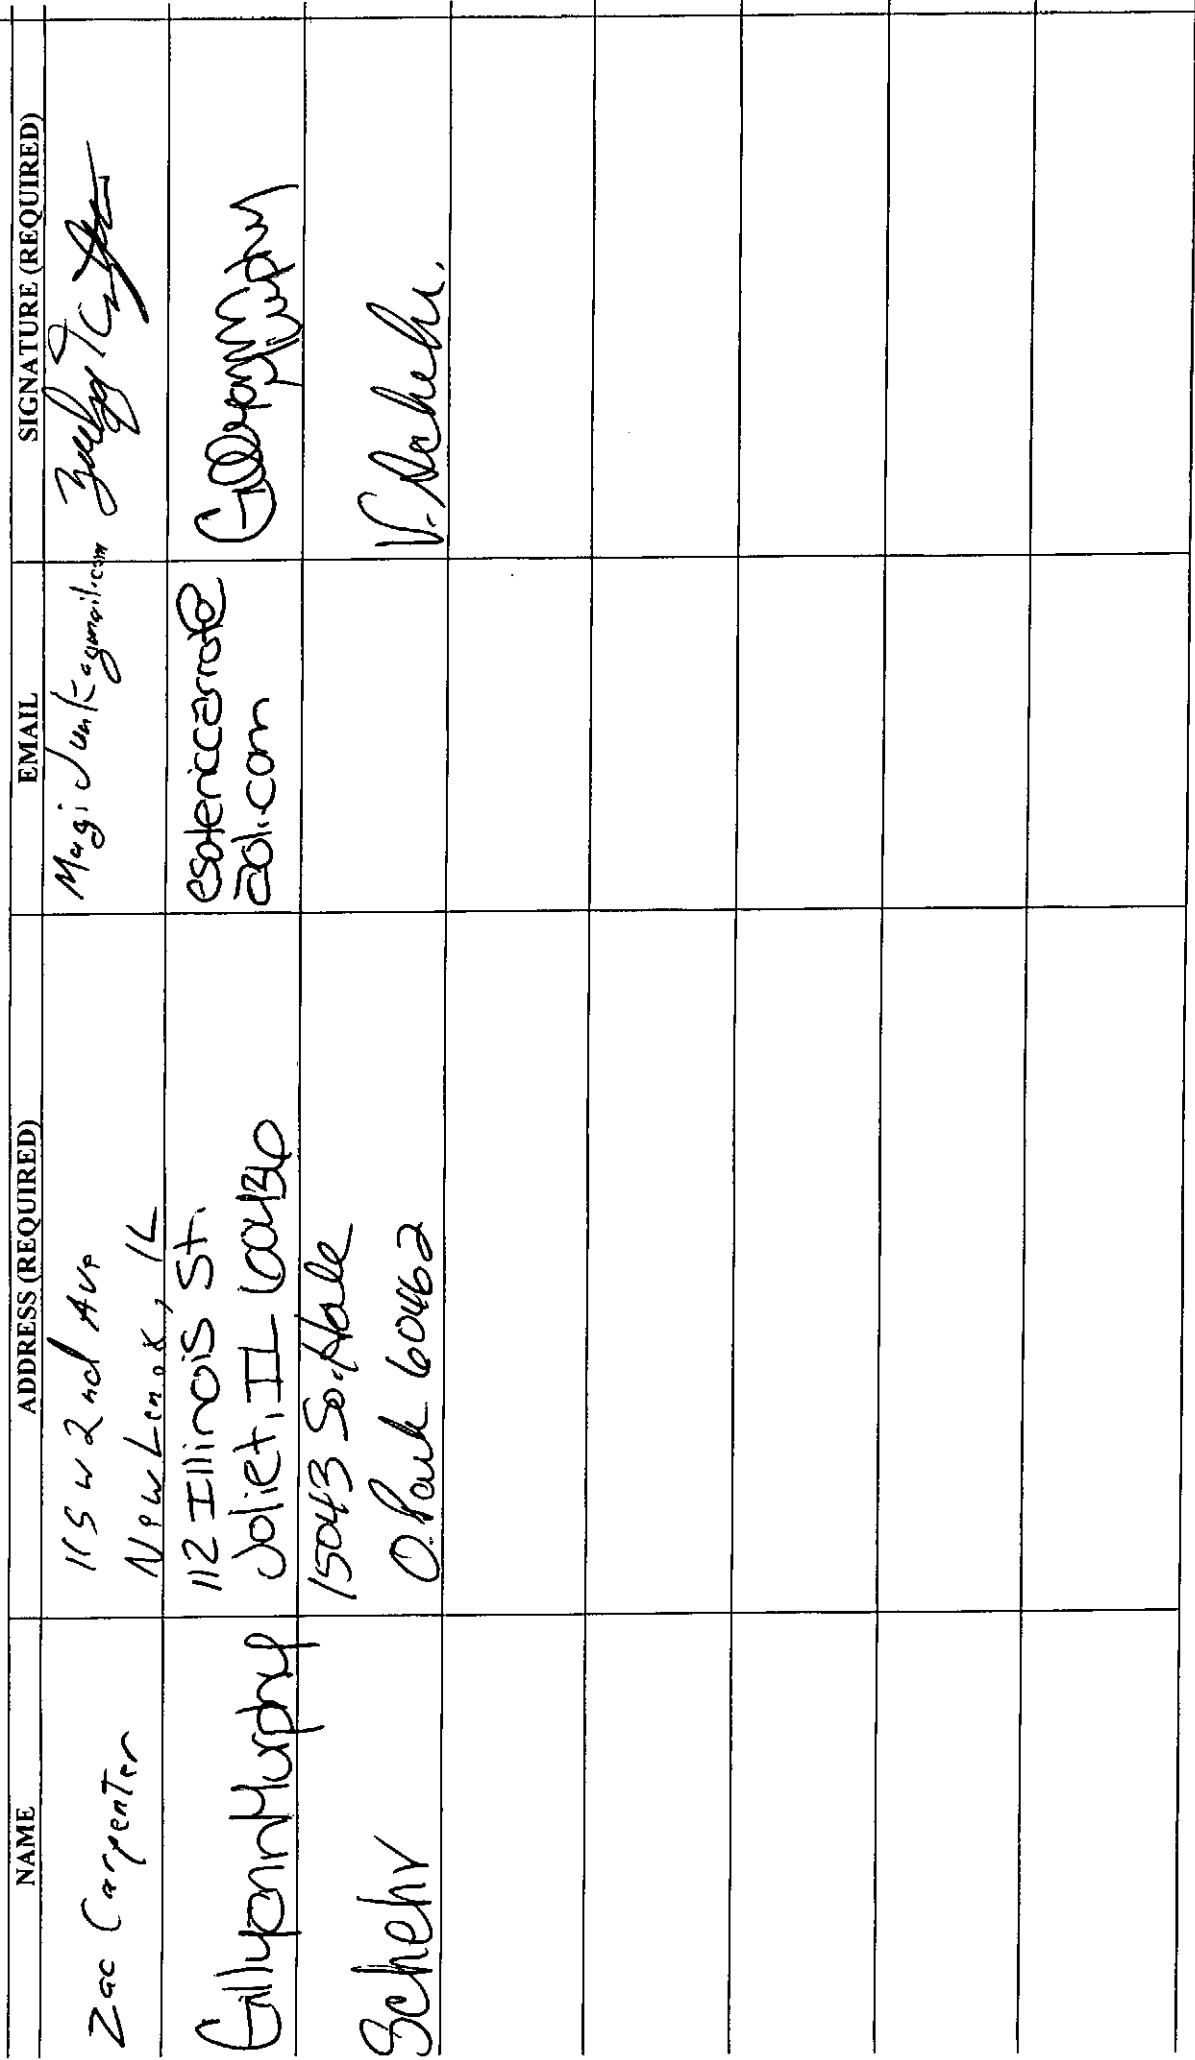 NAME
ADDRESS (REQUIRED)
EMAIL
SIGNATURE (REQUIRED)
Zac Carpenter
115 W 2nd Ave
New Lenox, IL
MagiJunk@gmail.com
Gillyann Murphy
112 Illinois St.
Joliet, IL 60436
esotericcarrot@
aol.com
Gillyann Murphy
Schehr
15043 So. Hale
O. Park 60462
V. Schehr